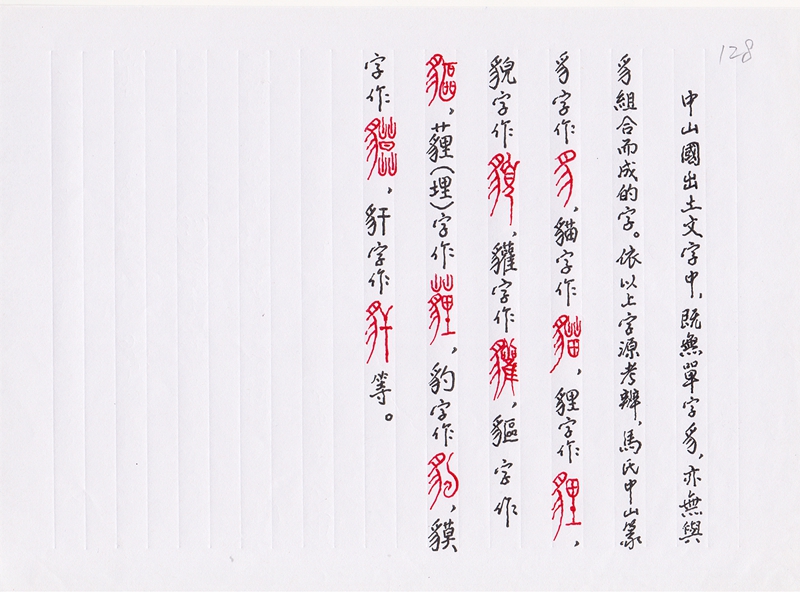 128
中山國出土文字中，既無單字豸，亦無與
豸組合而成的字。依以上字源考辨，馬氏中山篆
豸字作豸，貓字作貓，貍字作貍，
貌字作貌，貛字作貛，貙字作
貙，薶（埋）字作薶，豹字作豹，貘
字作貘，豻字作豻等。